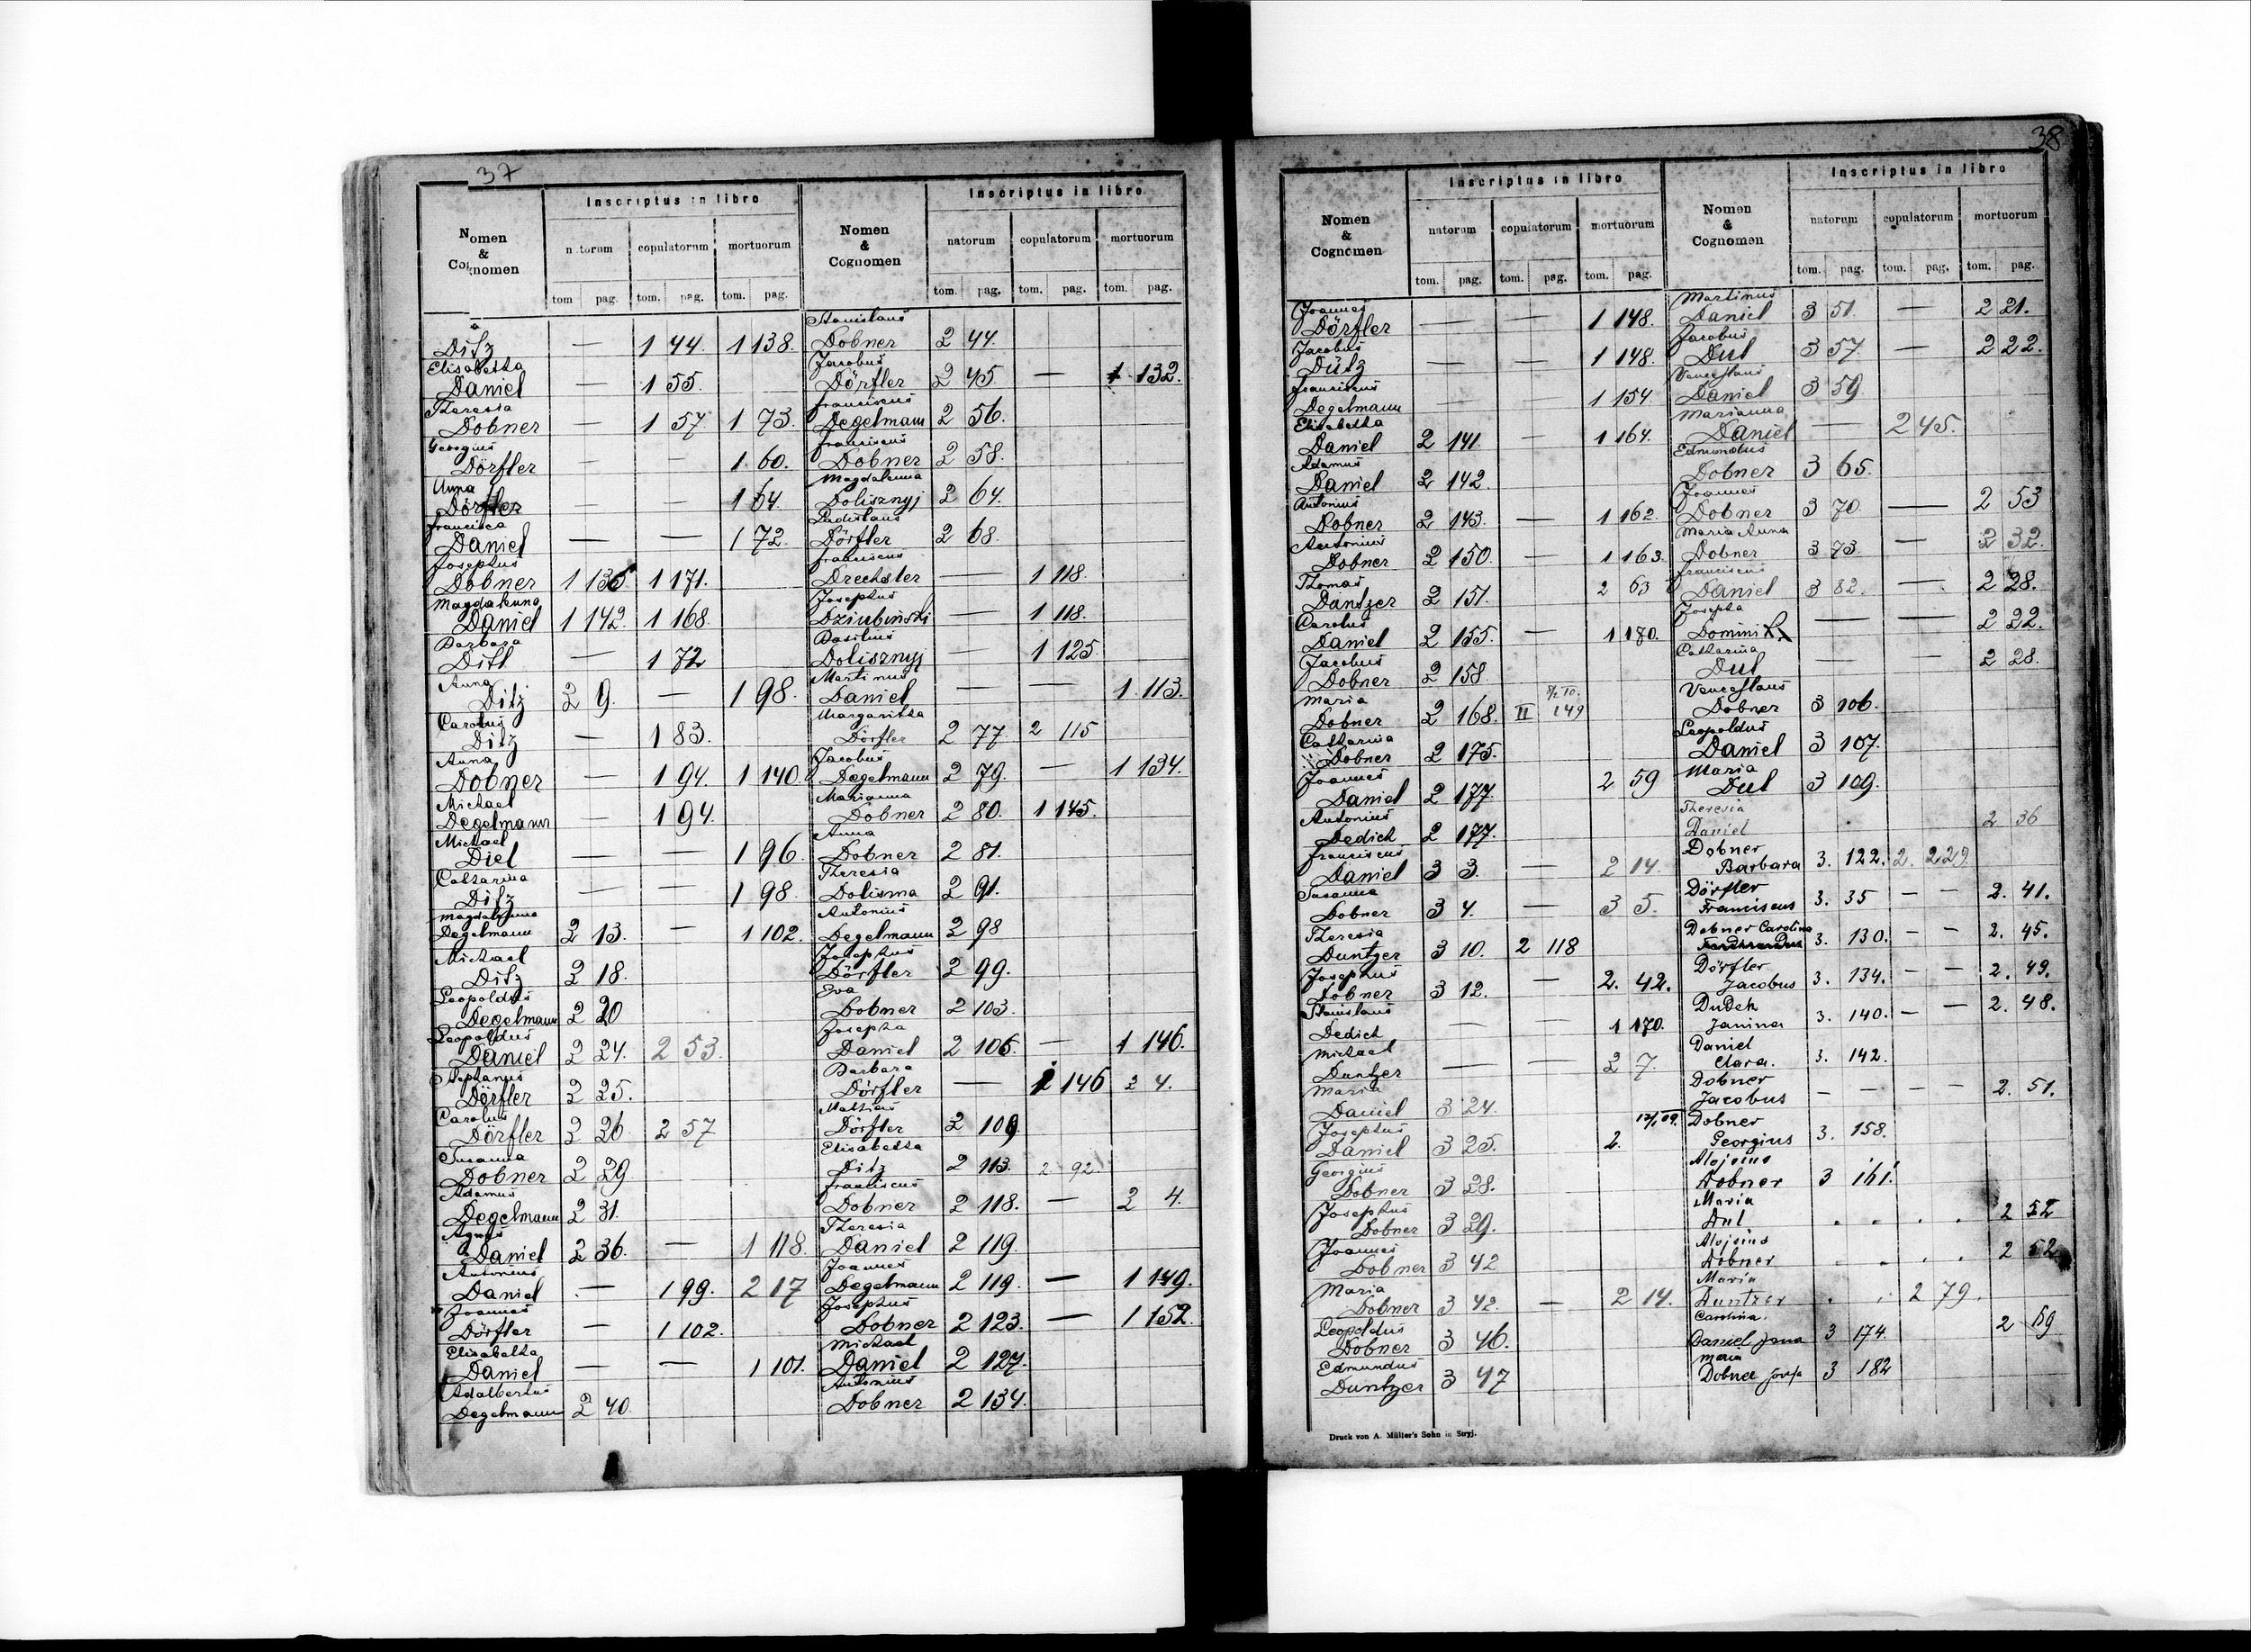 37
Nomen & Cognomen
Inscriptus in libro
natorum copulatorum mortuorum
tom. pag. tom. pag. tom. pag.
Ditz — 1 44. 1 138.
Elisabetha
Daniel — 1 55.
Theresia
Dobner — 1 57 1 73.
Georgius
Dörfler — — 1 60.
Anna
Dörfler — — 1 64.
Francisca
Daniel — — 1 72.
Josephus
Dobner 1 136 1 171.
Magdalenna
Daniel 1 142. 1 168.
Barbara
Ditl — 1 72
Anna
Ditz 2 9. — 1 98.
Carolus
Ditz — 1 83.
Anna
Dobner — 1 94. 1 140.
Michael
Degelmann — 1 94.
Michael
Diel — — 1 96.
Catharina
Ditz — — 1 98.
Magdalenna
Degelmann 2 13. — 1 102.
Michael
Ditz 2 18.
Leopoldus
Degelmann 2 20
Leopoldus
Daniel 2 24. 2 53.
Stephanus
Dörfler 2 25.
Carolus
Dörfler 2 26 2 57
Susanna
Dobner 2 29.
Adamus
Degelmann 2 31.
Agnes
Daniel 2 36. — 1 118.
Antonius
Daniel — 1 99. 2 17
Joannes
Dörfler — 1 102.
Elisabetha
Daniel — — 1 101.
Adalbertus
Degelmann 2 40.
Nomen & Cognomen
Inscriptus in libro
natorum copulatorum mortuorum
tom. pag. tom. pag. tom. pag.
Stanislaus
Dobner 2 44.
Jacobus
Dörfler 2 45. — 1 132.
Franciscus
Degelmann 2 56.
Franciscus
Dobner 2 58.
Magdalenna
Dolisznyj 2 64.
Ladislaus
Dörfler 2 68.
Franciscus
Drechsler — 1 118.
Josephus
Dziubiński — 1 118.
Basilius
Dolisznyj — 1 125.
Martinus
Daniel — — 1 113.
Margaritha
Dörfler 2 77. 2 115
Jacobus
Degelmann 2 79. — 1 134.
Marianna
Dobner 2 80. 1 145.
Anna
Dobner 2 81.
Theresia
Dolisma 2 91.
Antonius
Degelmann 2 98
Josephus
Dörfler 2 99.
Eva
Dobner 2 103.
Josepha
Daniel 2 106. — 1 146.
Barbara
Dörfler — 1 146 2 4.
Mathias
Dörfler 2 109.
Elisabetha
Ditz 2 113. 2 92.
Franciscus
Dobner 2 118. — 2 4.
Theresia
Daniel 2 119.
Joannes
Degelmann 2 119. — 1 149.
Josephus
Dobner 2 123. — 1 152.
Michael
Daniel 2 127.
Antonius
Dobner 2 134.
38
Nomen & Cognomen
Inscriptus in libro
natorum copulatorum mortuorum
tom. pag. tom. pag. tom. pag.
Joannes
Dörfler — — 1 148.
Jacobus
Dütz — — 1 148.
Franciscus
Degelmann — — 1 154
Elisabetha
Daniel 2 141. — 1 164.
Adamus
Daniel 2 142.
Antonius
Dobner 2 143. — 1 162.
Antonius
Dobner 2 150. — 1 163.
Thomas
Däntzer 2 151. 2 63
Carolus
Daniel 2 155. — 1 170.
Jacobus
Dobner 2 158
Maria
Dobner 2 168. II 149
Catharina
Dobner 2 175.
Joannes
Daniel 2 177. 2 59
Antonius
Dedich 2 177.
Franciscus
Daniel 3 3. — 2 14.
Susanna
Dobner 3 4. — 3 5.
Theresia
Duntzer 3 10. 2 118
Josephus
Dobner 3 12. — 2. 42.
Stanislaus
Dedich — — 1 170.
Michael
Duntzer — — 2 7.
Maria
Daniel 3 24.
Josephus
Daniel 3 25. 2.
Georgius
Dobner 3 28.
Josephus
Dobner 3 29.
Joannes
Dobner 3 42
Maria
Dobner 3 42. — 2 14.
Leopoldus
Dobner 3 46.
Edmundus
Duntzer 3 47
Druck von A. Müller's Sohn in Stryj.
Nomen & Cognomen
Inscriptus in libro
natorum copulatorum mortuorum
tom. pag. tom. pag. tom. pag.
Martinus
Daniel 3 51. — 2 21.
Jacobus
Dul 3 57. — 2 22.
Venceslaus
Daniel 3 59.
Marianna
Daniel — 2 45.
Edmundus
Dobner 3 65.
Joannes
Dobner 3 70. — 2 53
Maria Anna
Dobner 3 73. — 2 32.
Franciscus
Daniel 3 82. — 2 28.
Josepha
Domini — — 2 22.
Catharina
Dul — — 2 28.
Venceslaus
Dobner 3 106.
Leopoldus
Daniel 3 107.
Maria
Dul 3 109.
Theresia
Daniel 2 36
Dobner
Barbara 3. 122. 2. 229.
Dörfler
Franciscus 3. 35 — — 2. 41.
Dobner Carolina
3. 130. — — 2. 45.
Dörfler
Jacobus 3. 134. — — 2. 49.
Dudek
Janina 3. 140. — — 2. 48.
Daniel
Clara. 3. 142.
Dobner
Jacobus — — — — 2. 51.
Dobner
Georgius 3. 158.
Alojsius
Dobner 3 161.
Maria
Dul . . . . 2 52
Alojsius
Dobner . . . . 2 52
Maria
Duntzer . . 2 79.
Carolina
Daniel 3 174. 2 59
Maria
Dobner 3 182